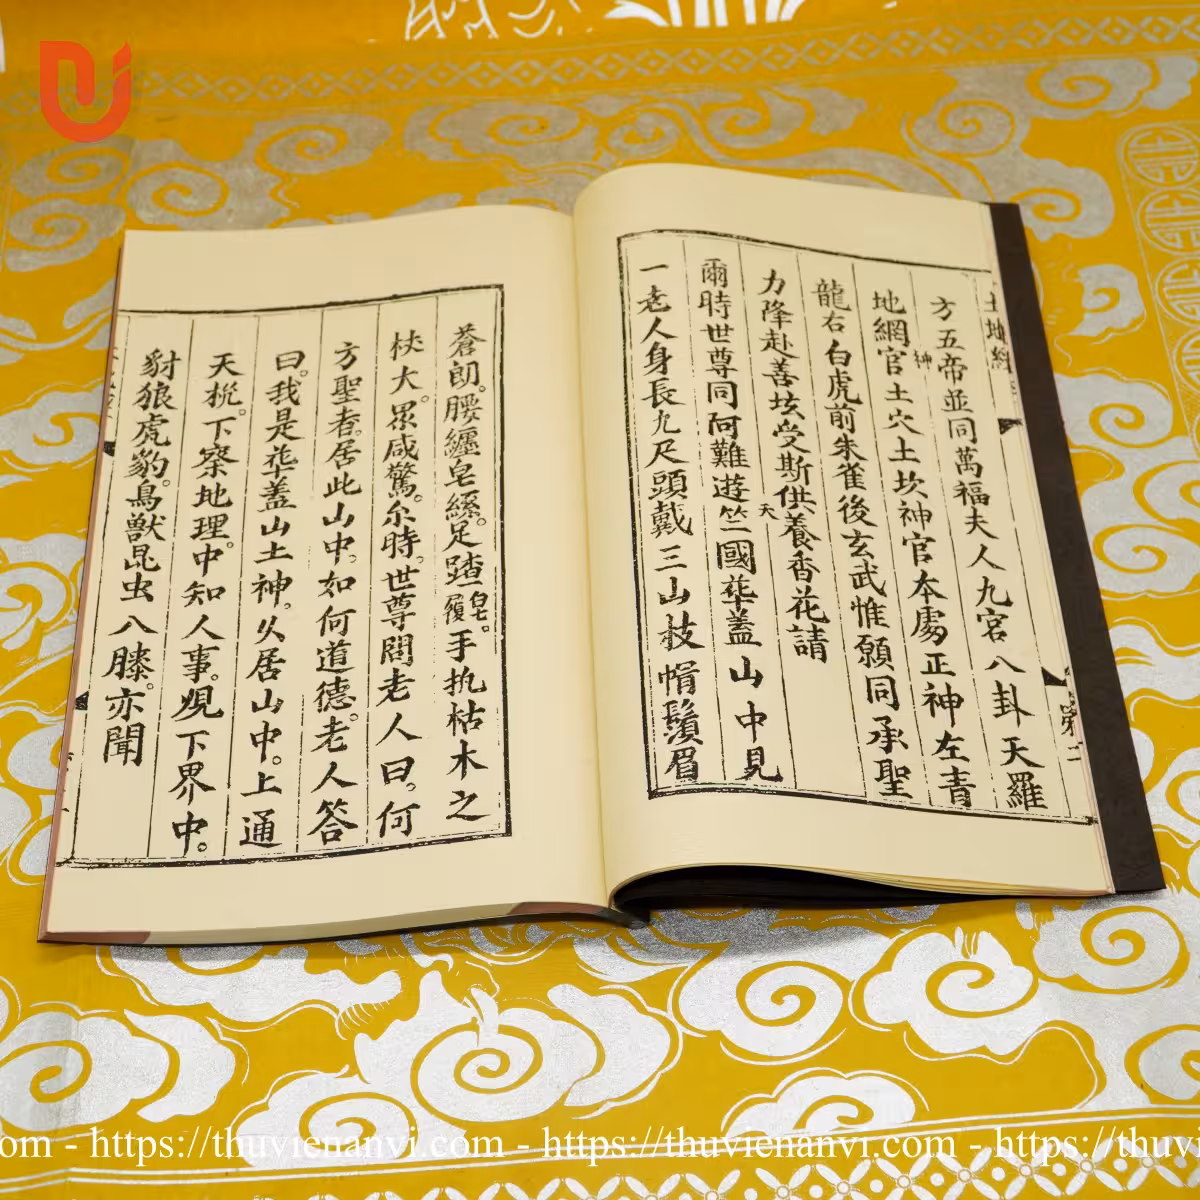 土地經
方五帝並同萬福夫人九宮八卦天羅
地網官神土穴土坎神官本處正神左青
龍右白虎前朱雀後玄武惟願同承聖
力降赴善垓受斯供養天香花請
爾時世尊同阿難遊竺國華蓋山中見
一老人身長九尺頭戴三山枝帽鬚眉
蒼朗。腰纏皂絲。足踏皂履。手执枯木之
杖大。眾咸驚。尒時。世尊問老人曰。何
方聖者。居此山中。如何道德。老人答
曰。我是華蓋山土神。乆居山中。上通
天梲。下察地理。中知人事。覌下界中。
豺狼虎豹。鳥獸昆虫八膝。亦聞
com - https://thuvienanvi.com - https://thuvienanvi.com - https://thuvi